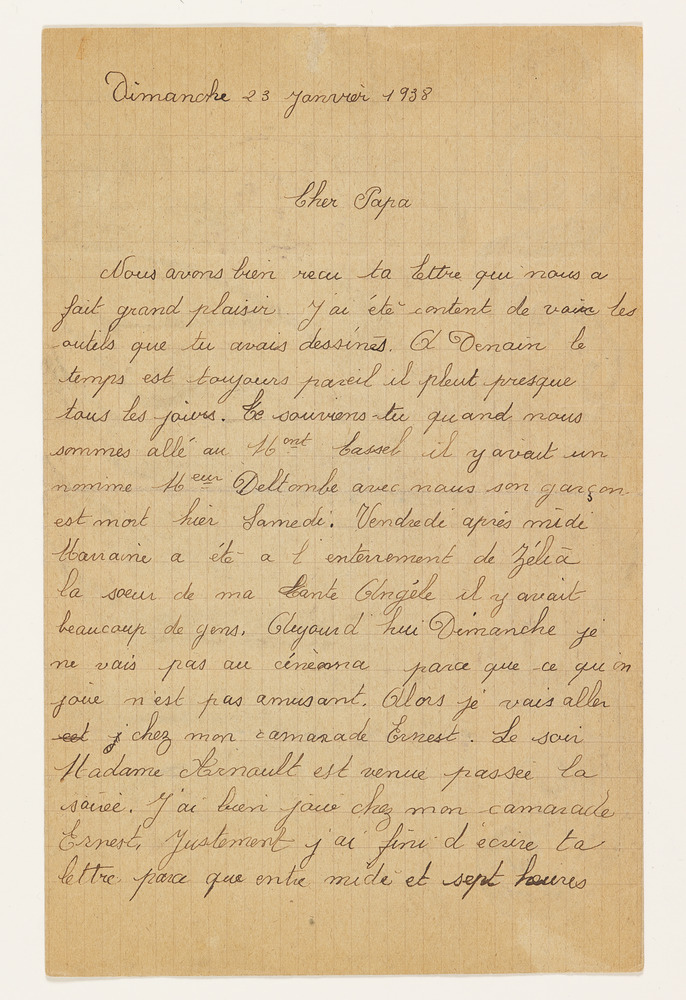 Dimanche 23 Janvier 1938
Cher Papa
Nous avons bien recu ta lettre qui nous a
fait grand plaisir. J'ai été content de voir les
outils que tu avais dessinés. A Denain le
temps est toujours pareil il pleut presque
tous les jours. Te souviens-tu quand nous
sommes allé au Mont Cassel il y avait un
nomme Meur Deltombe avec nous son garçon
est mort hier Samedi. Vendredi après midi
Marraine a été a l enterrement de Zélia
la sœur de ma tante Angéle il y avait
beaucoup de gens. Aujourd hui Dimanche je
ne vais pas au cinéma parce que ce qu'on
joue n'est pas amusant. Alors je vais aller
chez mon camarade Ernest. Le soir
Madame Arnoult est venue passée la
soirée. J'ai bien joué chez mon camarade
Ernest. Justement j ai fini d écrire ta
lettre parce que entre midi et sept heures